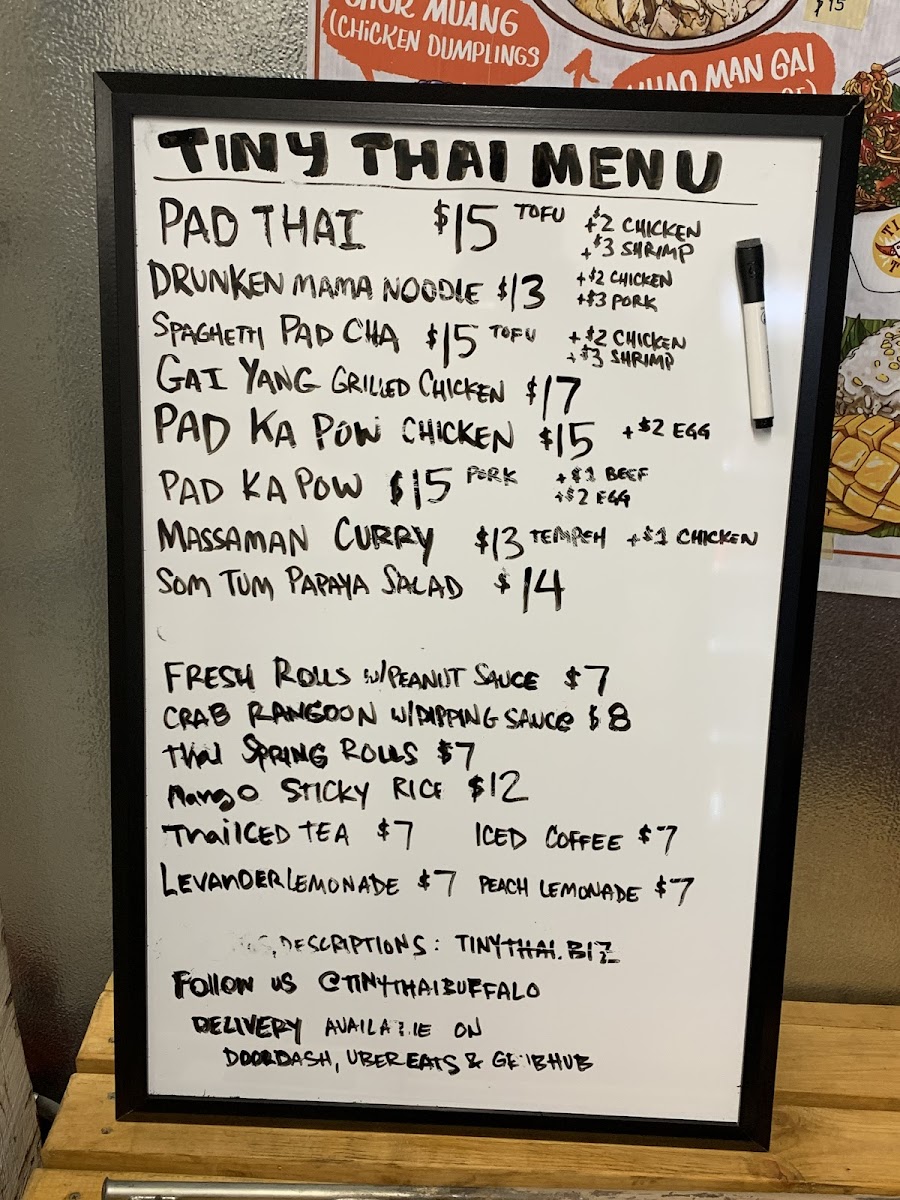 CHOR MUANG
(CHICKEN DUMPLINGS
KHAO MAN GAI
$15
TINY THAI MENU
PAD THAI $15 TOFU +$2 CHICKEN
+$3 SHRIMP
DRUNKEN MAMA NOODLE $13 +$2 CHICKEN
+$3 PORK
SPAGHETTI PAD CHA $15 TOFU +$2 CHICKEN
+$3 SHRIMP
GAI YANG GRILLED CHICKEN $17
PAD KA POW CHICKEN $15 +$2 EGG
PAD KA POW $15 PORK +$1 BEEF
+$2 EGG
MASSAMAN CURRY $13 TEMPEH +$1 CHICKEN
SOM TUM PAPAYA SALAD $14
FRESH ROLLS W/PEANUT SAUCE $7
CRAB RANGOON W/DIPPING SAUCE $8
THAI SPRING ROLLS $7
MANGO STICKY RICE $12
THAI ICED TEA $7 ICED COFFEE $7
LEVANDER LEMONADE $7 PEACH LEMONADE $7
DESCRIPTIONS: TINYTHAI.BIZ
FOLLOW US @TINYTHAIBUFFALO
DELIVERY AVAILABLE ON
DOORDASH, UBER EATS & GRUBHUB